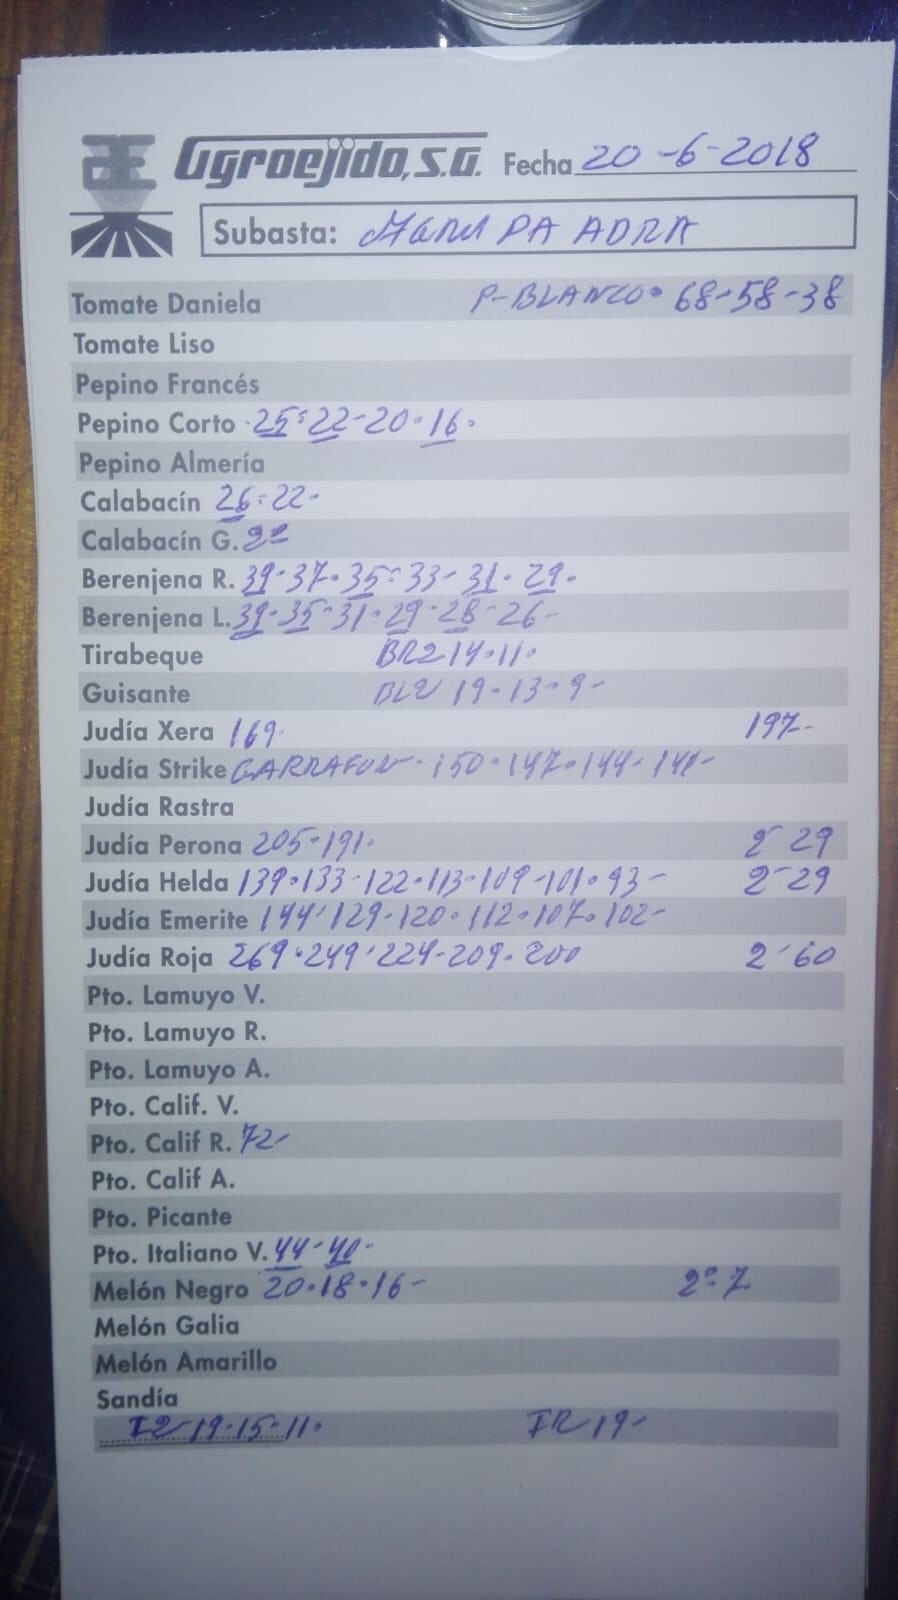 Agroejido, S.A. Fecha 20-6-2018
Subasta: PA ADRA
Tomate Daniela P-BLANCO. 68-58-38
Tomate Liso
Pepino Francés
Pepino Corto 25-22-20-16.
Pepino Almería
Calabacín 26-22-
Calabacín G.
Berenjena R. 39-37-35-33-31-29.
Berenjena L. 39-35-31-29-28-26-
Tirabeque BR2 14-11.
Guisante BL2 19-13-9-
Judía Xera 169. 197-
Judía Strike GARRAFON-150-147-144-141-
Judía Rastra
Judía Perona 205-191. 2-29
Judía Helda 139-133-122-113-109-101-93- 2-29
Judía Emerite 144-129-120-112-107-102-
Judía Roja 269-249-224-209-200 2-60
Pto. Lamuyo V.
Pto. Lamuyo R.
Pto. Lamuyo A.
Pto. Calif. V.
Pto. Calif R. 72-
Pto. Calif A.
Pto. Picante
Pto. Italiano V. 44-40-
Melón Negro 20-18-16- 2ª-7
Melón Galia
Melón Amarillo
Sandía
19-15-11. 19-